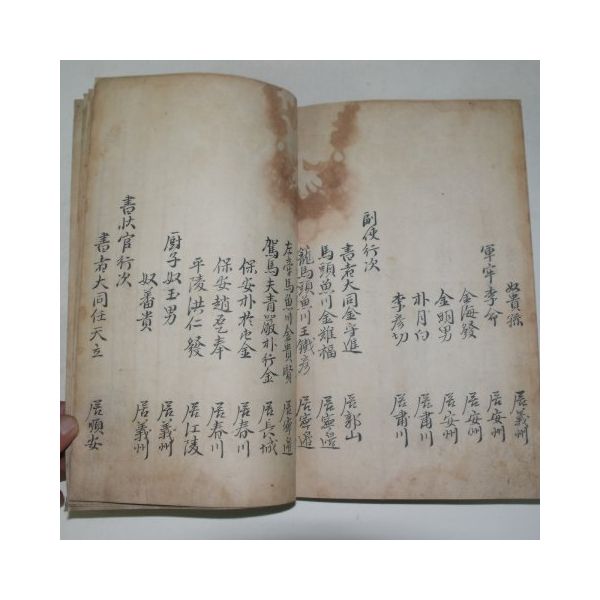 奴貴孫 居義州
軍牢李命 居安州
金海發 居安州
金明男 居安州
朴月白 居肅川
李彦切 居肅川
副使行次
書者大同金守進 居郭山
馬頭魚川金雄福 居寧邊
籠馬頭魚川王鐵彦 居寧邊
左牽馬魚川金貴賢 居寧邊
駕馬夫青嚴朴行金 居長城
保安朴 金 居春川
保安趙 奉 居春川
平陵洪仁發 居江陵
厨子奴玉男 居義州
奴蕃貴 居義州
書狀官行次
書者大同任天立 居順安